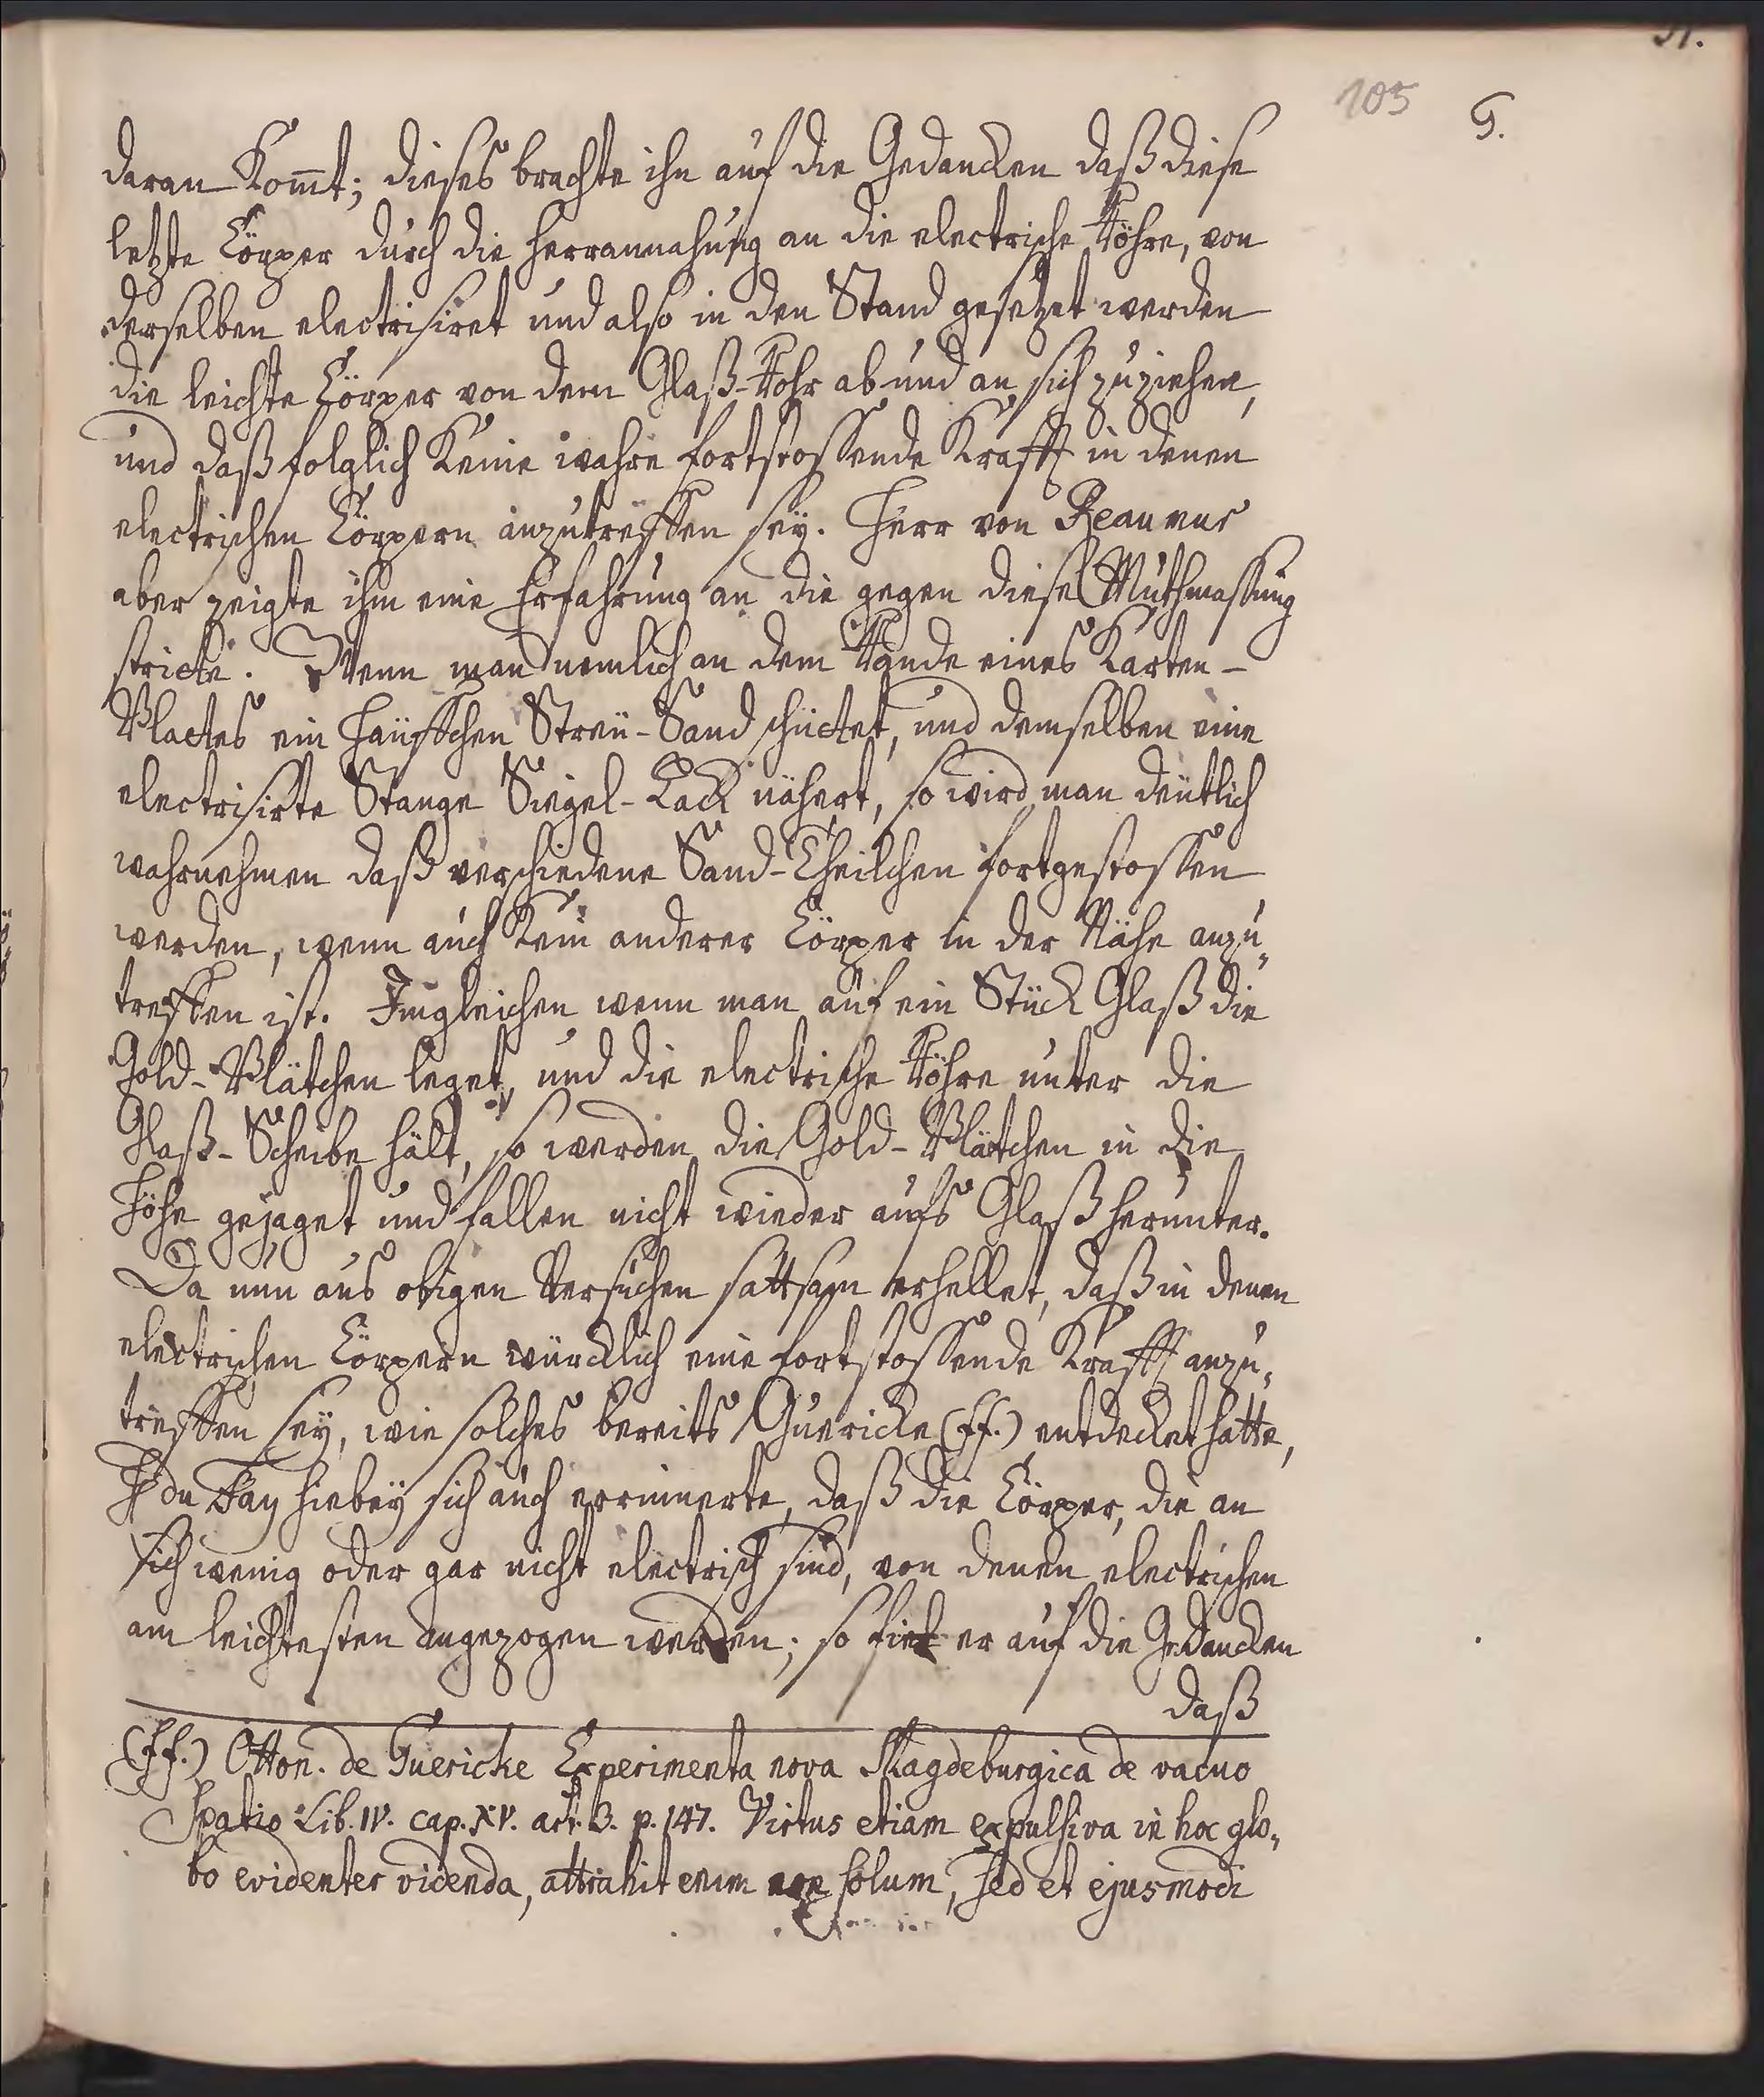 105
G.
daran kom̄t; dieses brachte ihn auf die Gedancken daß diese
letzte Cörper durch die Herrannahung an die electrische Röhre, von
derselben electrisiret und also in den Stand gesetzet werden
die leichte Cörper von dem Glaß-Rohr ab und an sich zu ziehen,
und daß folglich keine wahre fortstossende Krafft in denen
electrischen Cörpern anzutreffen sey. Herr von Reaumur
aber zeigte ihm eine Erfahrung an die gegen diese Muthmassung
stritte. Wenn man nemlich an dem Rande eines Karten-
Blattes ein Häuffchen Streü-Sand schüttet, und demselben eine
electrisirte Stange Siegel-Lack nähert, so wird man deutlich
wahrnehmen daß verschiedene Sand-Theilchen fortgestossen
werden, wenn auch kein anderer Cörper in der Nähe anzu„
treffen ist. Imgleichen wenn man auf ein Stück Glaß die
Gold-Blätchen leget, und die electrische Röhre unter die
Glaß-Scheibe hält, so werden die Gold-Blättchen in die
Höhe gejaget und fallen nicht wieder aufs Glaß herunter.
Da nun aus obigen Versuchen sattsam erhellet, daß in denen
electrischen Cörpern würcklich eine fortstossende Krafft anzu„
treffen sey, wie solches bereits Guericke (ff.) entdecket hatte,
H du Fay hiebey sich auch errinnerte, daß die Cörper, die an
sich wenig oder gar nicht electrisch sind, von denen electrischen
am leichtesten angezogen werden; so fiel er auf die Gedancken
daß
(ff.) Otton. de Guericke Experimenta nova Magdeburgica de vacuo
Spatio Lib. IV. cap. XV. art. 3. p. 147. Virtus etiam expulsiva in hoc glo„
bo evidenter videnda, attrahit enim non solum, sed et ejusmodi